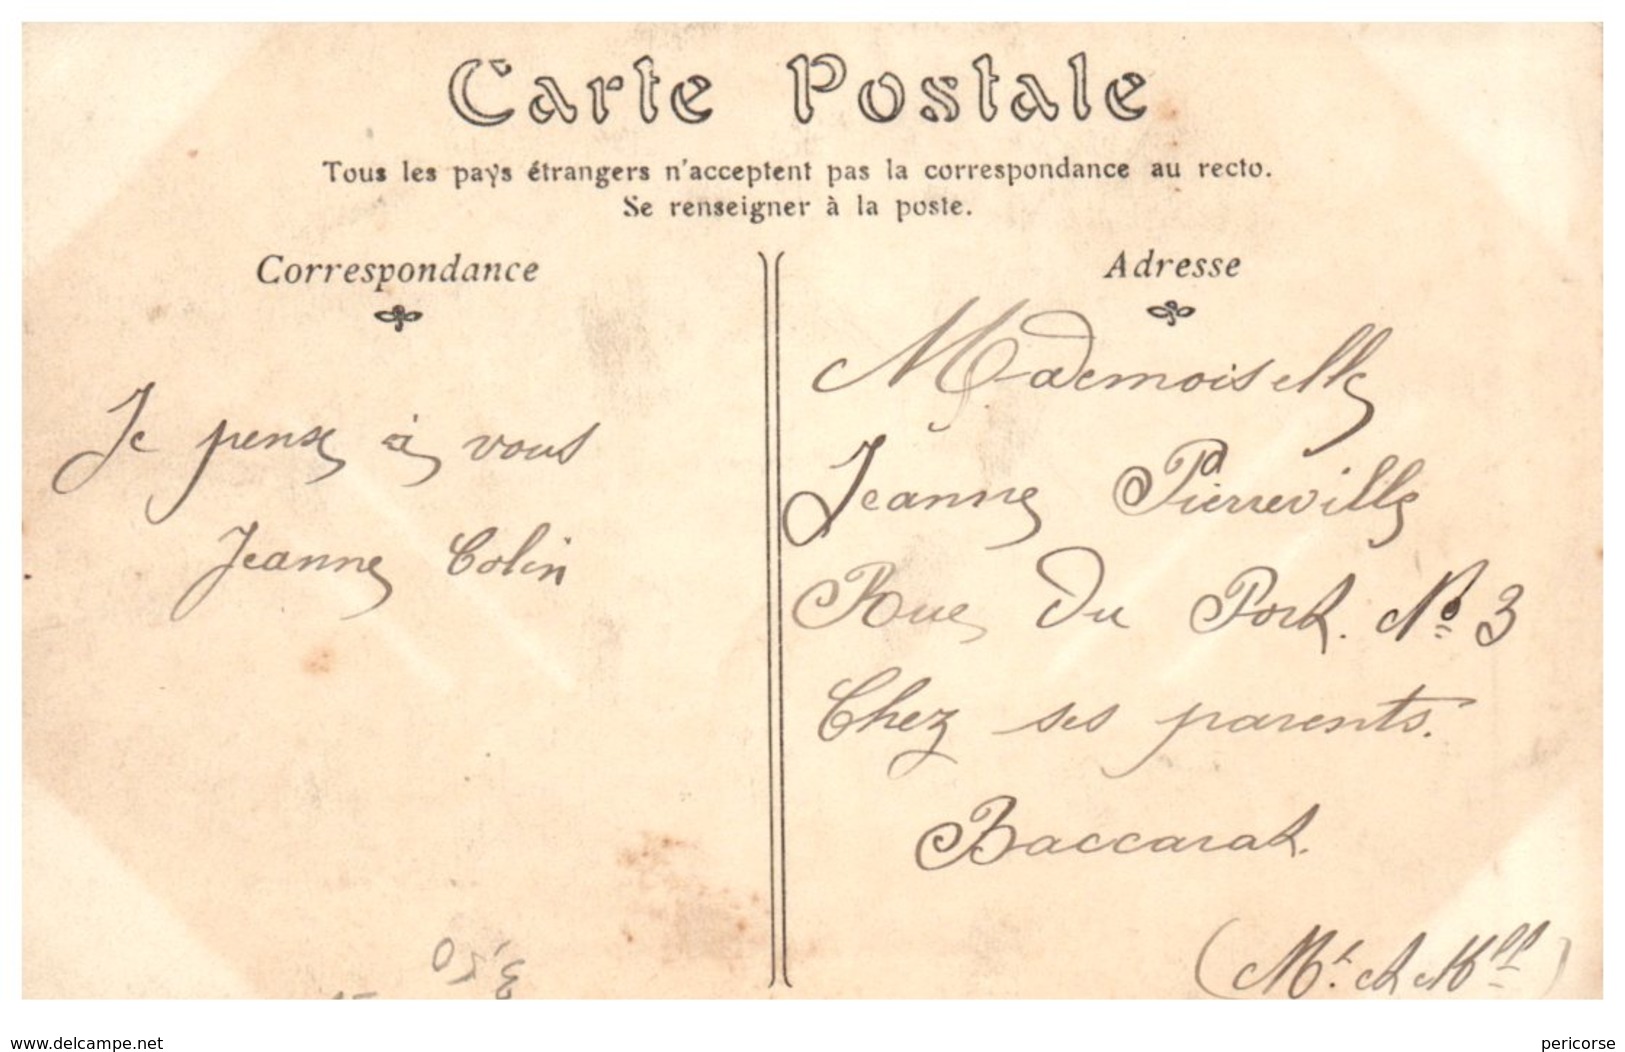 Carte Postale
Tous les pays étrangers n'acceptent pas la correspondance au recto.
Se renseigner à la poste.
Correspondance
Je pense à vous
Jeanne Colin
Adresse
Mademoiselle
Jeanne Pierreville
Rue du Port. No 3
Chez ses parents.
Baccarat.
(Mt. et Mlle)
3,50
www.delcampe.net
pericorse